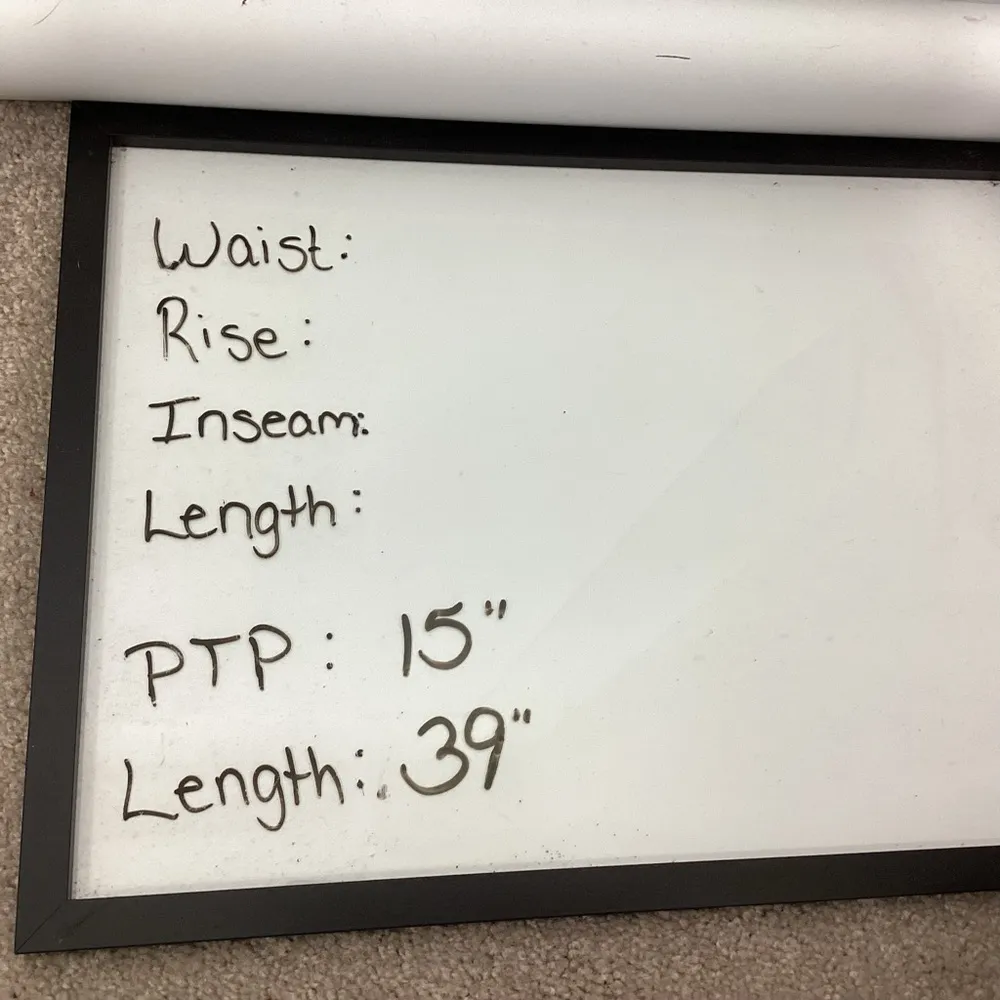 Waist:
Rise:
Inseam:
Length:
PTP: 15"
Length: 39"